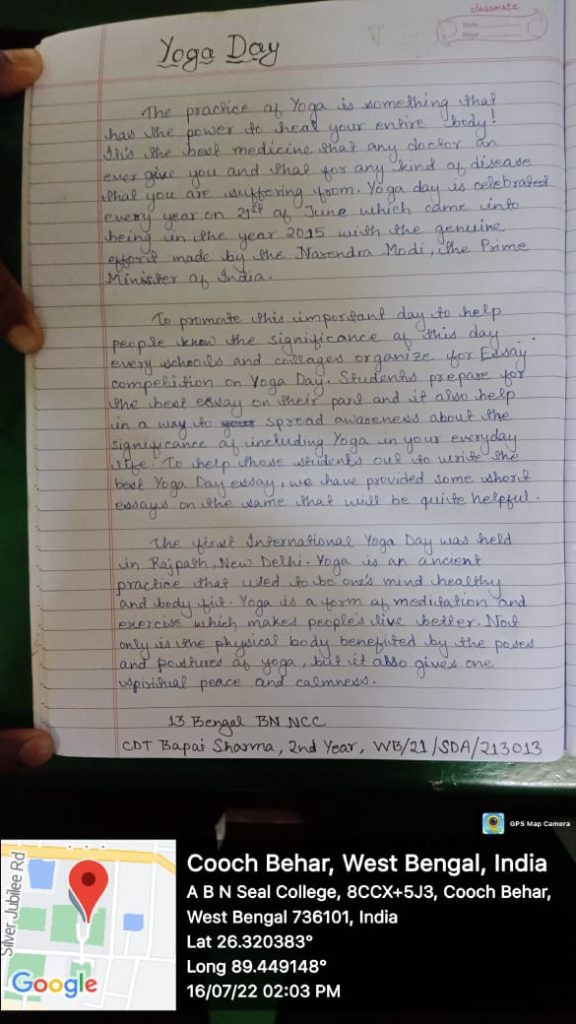 classmate
Date
Page
Yoga Day
The practice of Yoga is something that
has the power to heal your entire body!
It's the best medicine that any doctor an
ever give you and that for any kind of disease
that you are suffering from. Yoga day is celebrated
every year on 21st of June which came into
being in the year 2015 with the genuine
effort made by the Narendra Modi, the Prime
Minister of India.
To promote this important day to help
people know the significance of this day.
every schools and collages organize for Essay
competition on Yoga Day. Students prepare for
the best essay on their part and it also help
in a way to spread awareness about the
significance of including Yoga in your everyday
life. To help those students out to write the
best Yoga Day essay, we have provided some short
essays on the same that will be quite helpful.
The first International Yoga Day was held
in Rajpath, New Delhi. Yoga is an ancient
practice that used to be one's mind healthy
and body fit. Yoga is a form of meditation and
exercise which makes people's live better. Not
only is the physical body benefited by the poses
and postures of yoga, but it also gives one
spiritual peace and calmness.
13 Bengal BN NCC
CDT Bapai Sharma, 2nd Year, WB/21/SDA/213013
GPS Map Camera
Silver Jubilee Rd
Google
Cooch Behar, West Bengal, India
A B N Seal College, 8CCX+5J3, Cooch Behar,
West Bengal 736101, India
Lat 26.320383°
Long 89.449148°
16/07/22 02:03 PM